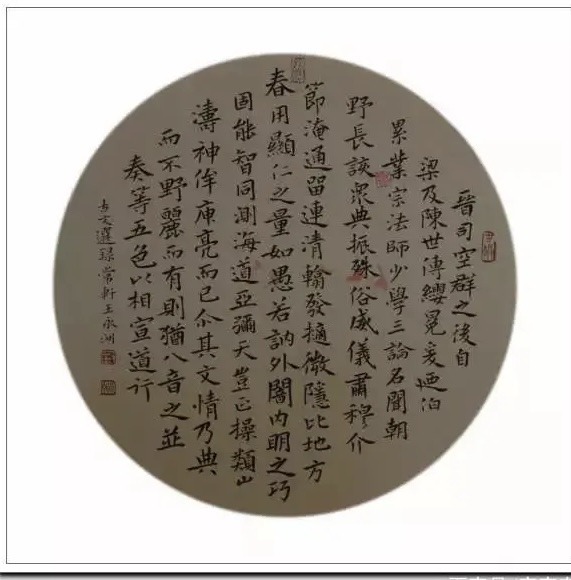 晉司空群之後自
梁及陳世傳纓冕爰迺伯
累葉宗法師少學三論名聞朝
野長該眾典振殊俗威儀肅穆介
節淹通留連清翰發擿微隱比地方
春用顯仁之量如愚若訥外闇內明之巧
固能智同測海道亞彌天豈止操類山
濤神侔庾亮而已尒其文情乃典
而不野麗而有則猶八音之並
奏等五色以相宣道行
古文選録常軒王永洲